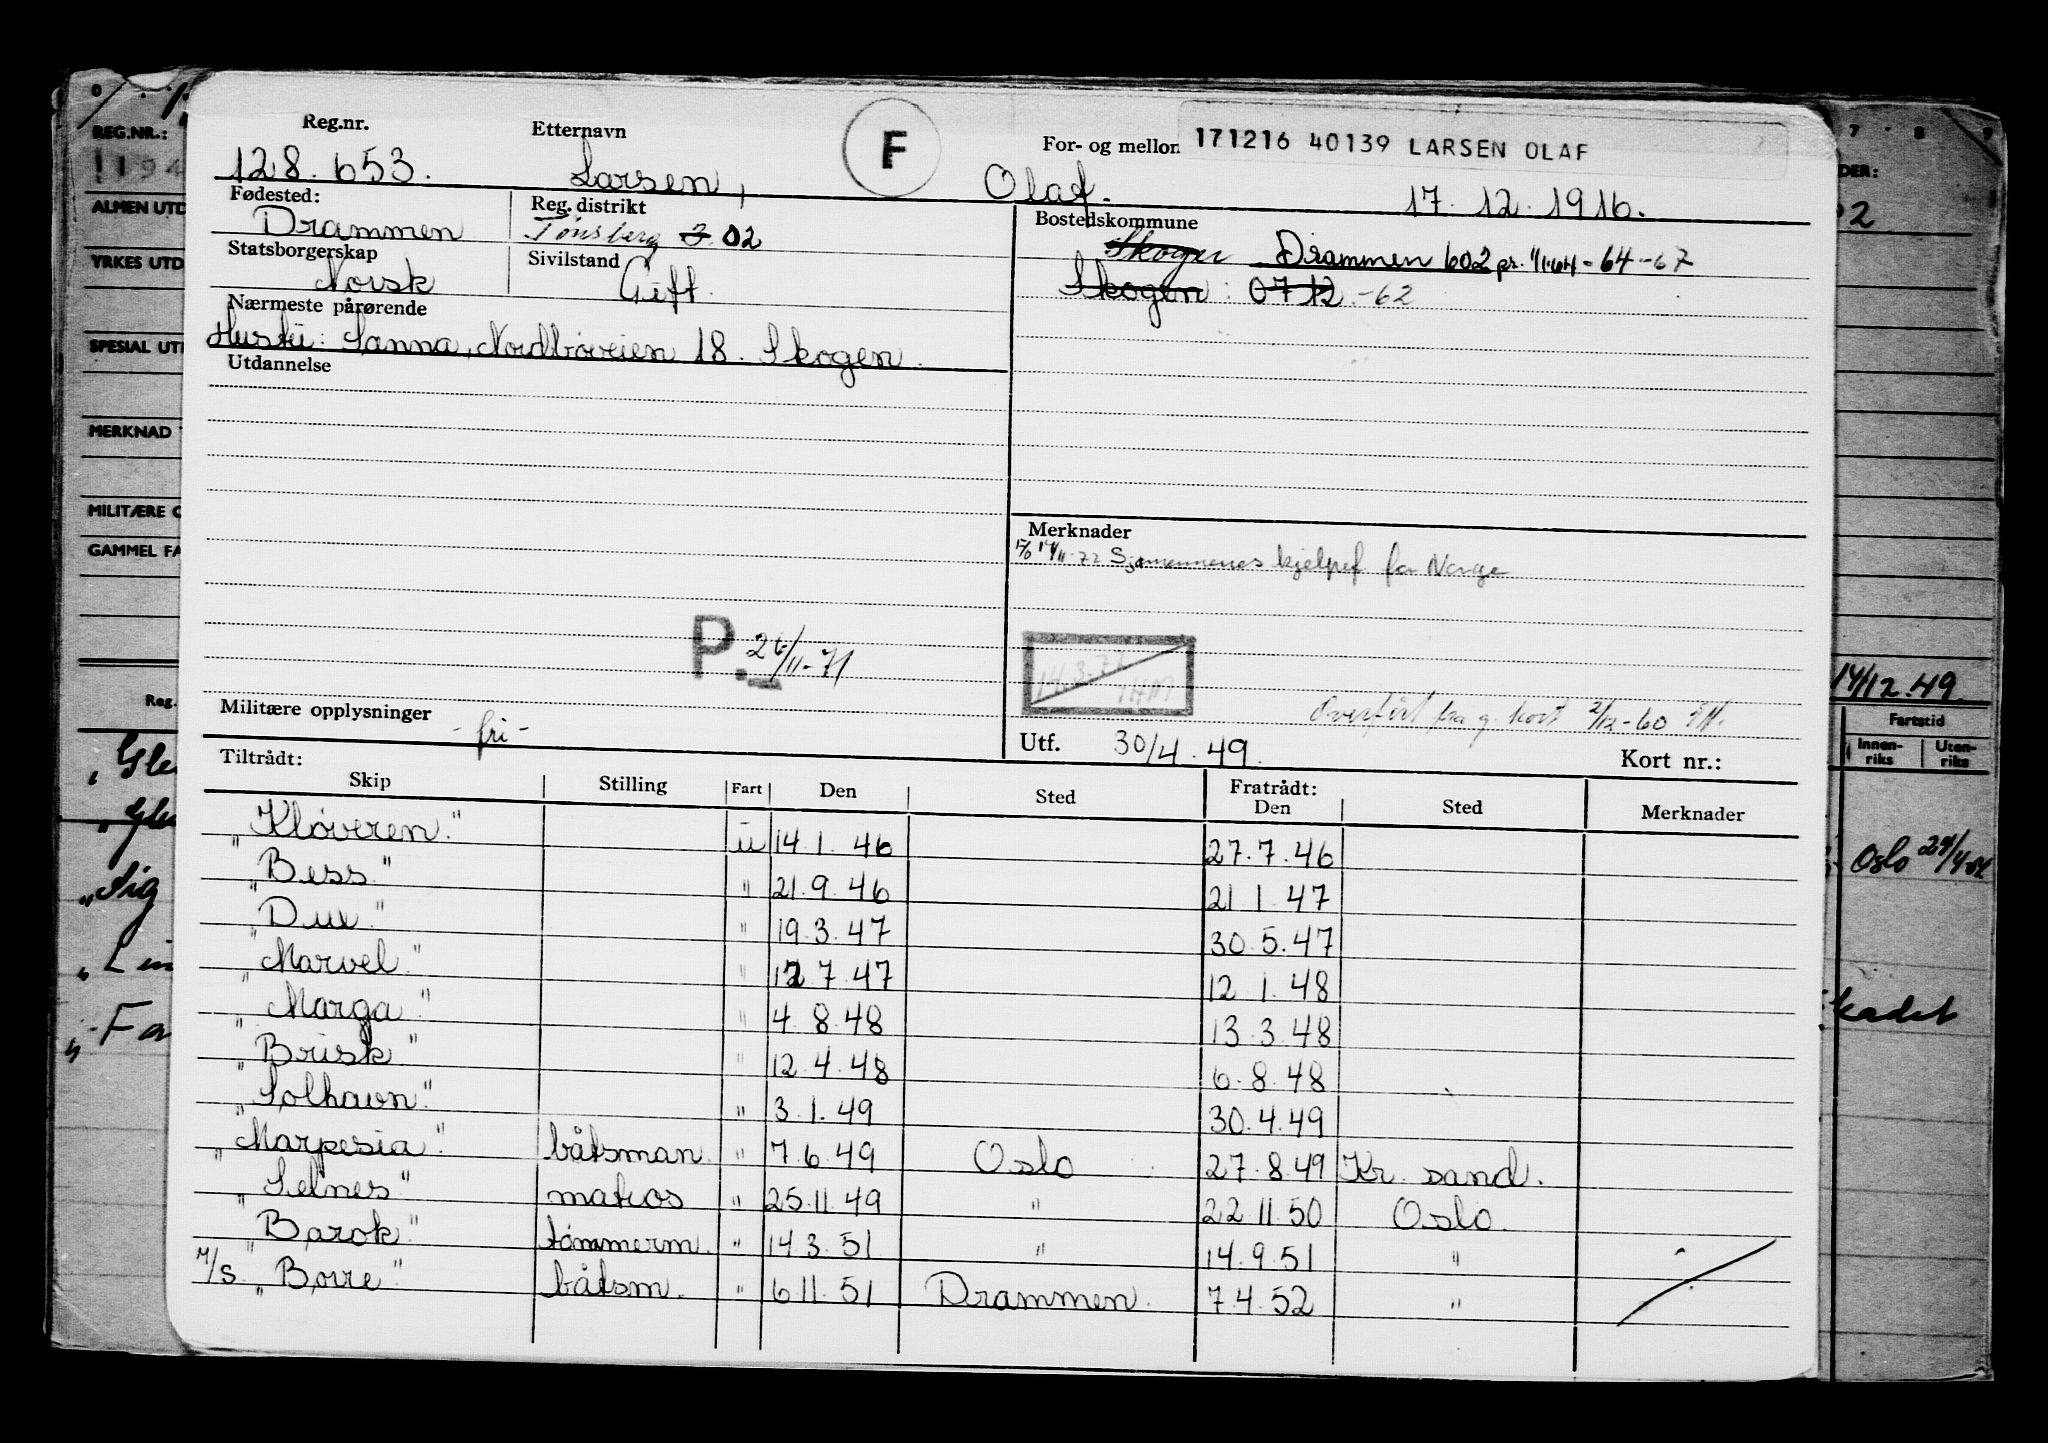 Reg.nr. Etternavn F For- og mellon 171216 40139 LARSEN OLAF
128.653. Larsen, Olaf. 17.12.1916.
Fødested: Reg. distrikt Bostedskommune
Drammen Tønsberg 3. 02 Skoger Drammen 602 pr. 1/1-64-64-67
Statsborgerskap Sivilstand Skogen: 0712-62
Norsk Gift.
Nærmeste pårørende
Hustru: Sanna, Nordbøveien 18. Skogen.
Utdannelse
Merknader
Sjømennenes hjelpef for Norge
P. 26/11-71
14.3.72
Overført fra g. kort 2/12-60
Militære opplysninger -fri-
Utf. 30/4.49. Kort nr.:
Tiltrådt: Fratrådt:
Skip Stilling Fart Den Sted Den Sted Merknader
"Kløveren" u 14.1.46 27.7.46
"Bess" " 21.9.46 21.1.47
"Dux" " 19.3.47 30.5.47
"Marvel" " 12.7.47 12.1.48
"Marga" " 4.8.48 13.3.48
"Brisk" " 12.4.48 6.8.48
"Solhavn" " 3.1.49 30.4.49
"Marpesia" båtsman " 7.6.49 Oslo 27.8.49 Kr. sand.
"Selnes" matros " 25.11.49 " 22.11.50 Oslo.
"Barok" tømmerm. " 14.3.51 " 14.9.51 "
M/S "Borre" båtsm. " 6.11.51 Drammen. 7.4.52 "
REG.NR.:
ALMEN UTD
YRKES UTD
SPESIAL UT
MERKNAD
MILITÆRE
GAMMEL FA
Reg.
DER:
14/12.49.
Fartstid
Innen-riks Uten-riks
Oslo